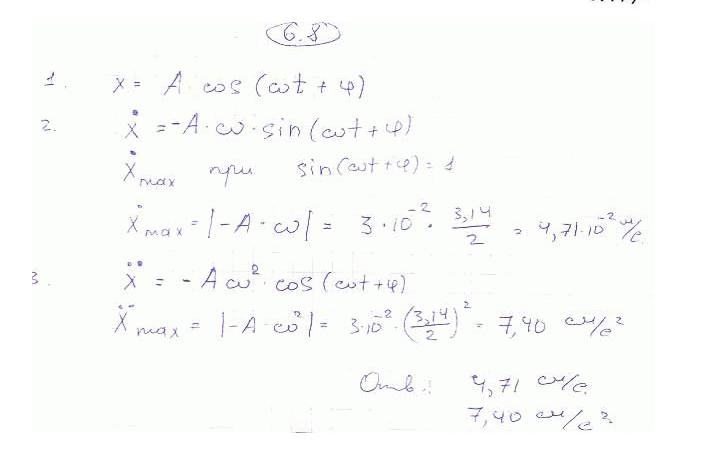 6.8
1. x = A cos (ωt + φ)
2. ẋ = -A·ω·sin(ωt+φ)
ẋmax при sin(ωt+φ) = 1
ẋmax = |-A·ω| = 3·10⁻²·3,14/2 = 4,71·10⁻² м/с
3. ẍ = -Aω²·cos(ωt+φ)
ẍmax = |-A·ω²| = 3·10⁻²·(3,14/2)² = 7,40 см/с²
Отв.: 4,71 см/с.
7,40 см/с²